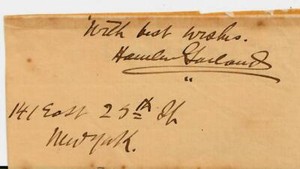 With best wishes.
Hamlin Garland
"
141 East 25th St
New York.